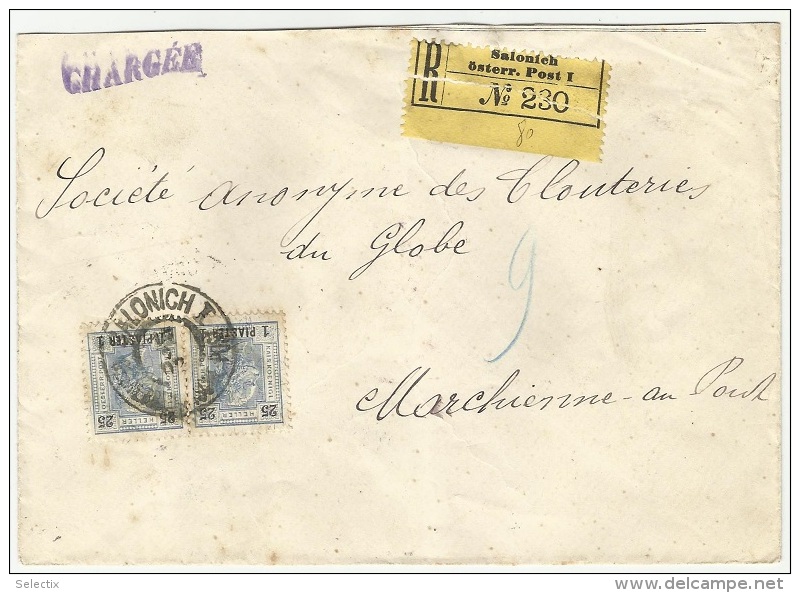 CHARGÉE
R
Salonich
österr. Post I
No 230
80
Société anonyme des Clouteries
du Globe
9
Marchienne-au Pont
LONICH I
1 PIASTER 1
1 PIASTER 1
25 HELLER 25
25 HELLER 25
Selectix
delcampe.net